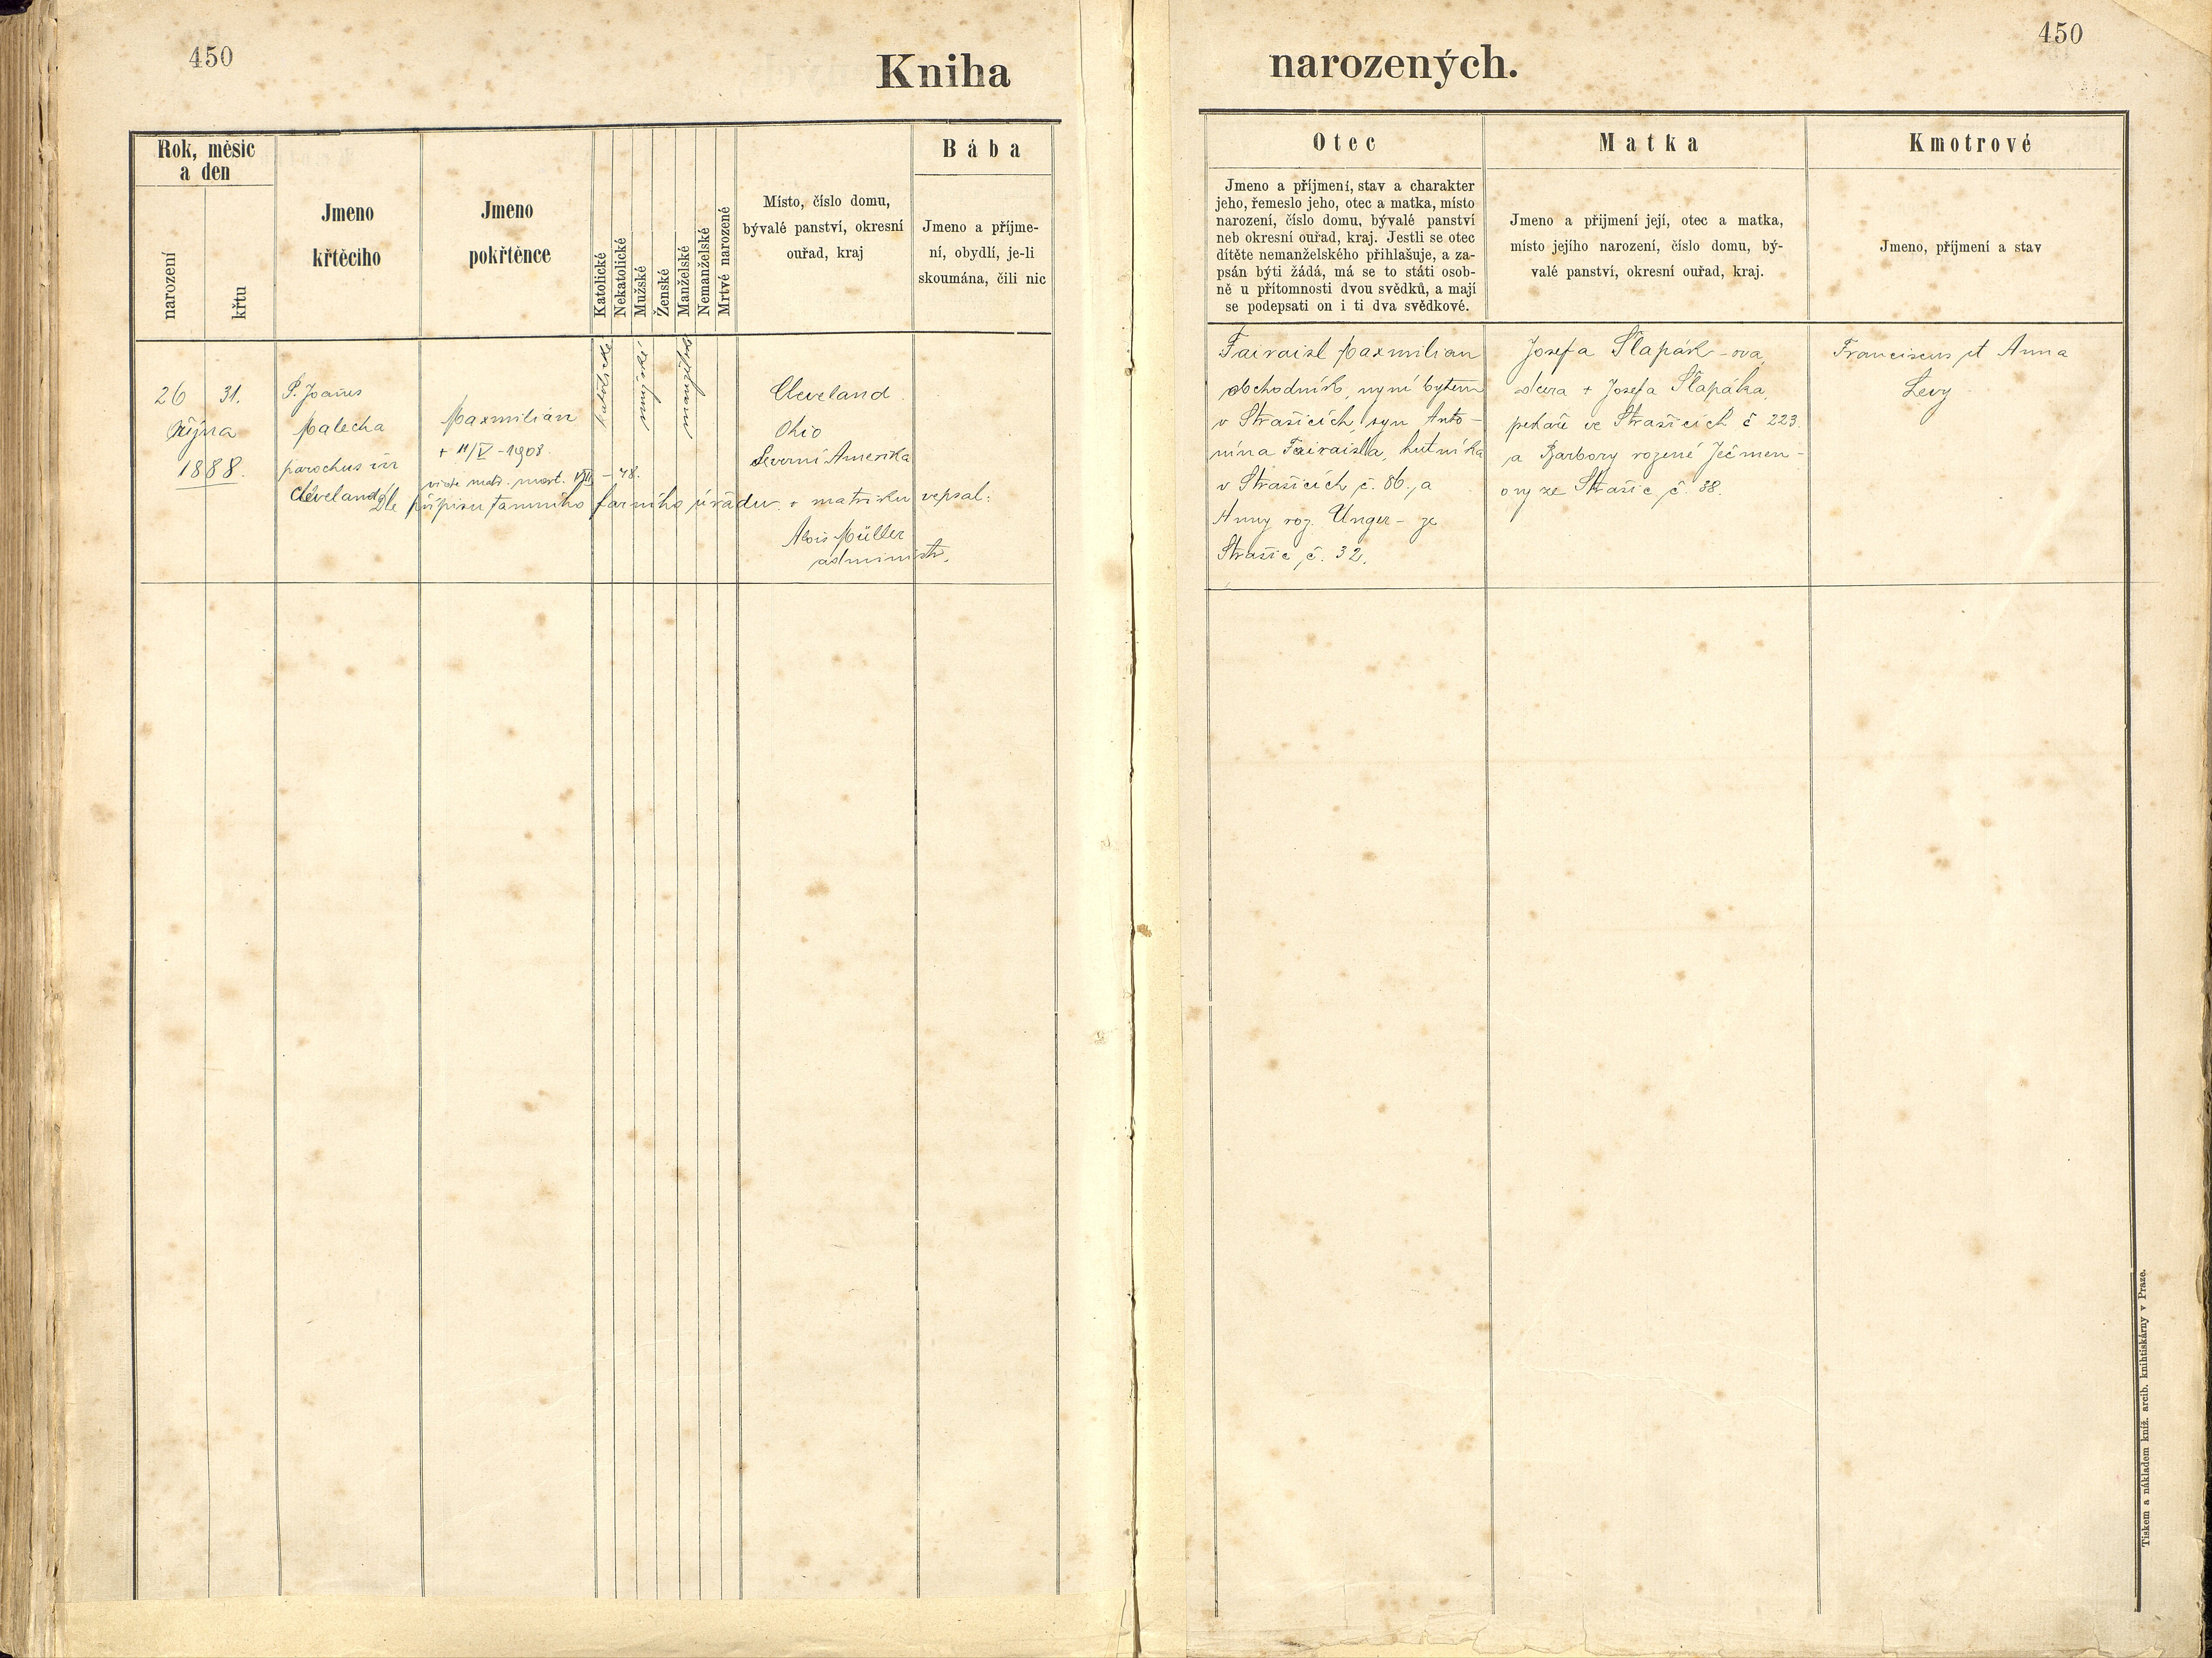 450
Kniha
Rok, měsíc
a den
narození
křtu
Jmeno
křtěcího
Jmeno
pokřtěnce
Katolické
Nekatolické
Mužské
Ženské
Manželské
Nemanželské
Mrtvé narozené
Místo, číslo domu,
bývalé panství, okresní
ouřad, kraj
Bába
Jmeno a příjme-
ní, obydlí, je-li
skoumána, čili nic
26 31.
října
1888.
P. Joañes
Malecha
parochus in
Cleveland
Maxmilián
+ 11/V - 1908.
vide matr. mort. VIII - 48.
katolické
mužské
manželské
Cleveland
Ohio
Severní Amerika
Dle přípisu tamního farního úřadu v matriku vepsal:
Alois Müller
administr.
narozených.
450
Otec
Jmeno a příjmení, stav a charakter
jeho, řemeslo jeho, otec a matka, místo
narození, číslo domu, bývalé panství
neb okresní ouřad, kraj. Jestli se otec
dítěte nemanželského přihlašuje, a za-
psán býti žádá, má se to státi osob-
ně u přítomnosti dvou svědků, a mají
se podepsati on i ti dva svědkové.
Matka
Jmeno a přijmení její, otec a matka,
místo jejího narození, číslo domu, bý-
valé panství, okresní ouřad, kraj.
Kmotrové
Jmeno, příjmení a stav
Fairaisl Maxmilian
obchodník, nyní bytem
v Strašicích, syn Anto-
nína Fairaisla, hutníka
v Strašicích č. 86., a
Anny roz. Unger - ze
Strašic č. 32.
Josefa Šlapák - ova,
dcera + Josefa Šlapáka,
pekaře ve Strašicích č 223.
a Barbory rozené Ječmen -
ovy ze Strašic č. 38.
Franciscus et Anna
Levy
Tiskem a nákladem kníž. arcib. knihtiskárny v Praze.